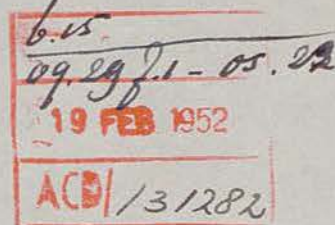 6.15
09.29 f.1 - 05.22
19 FEB 1952
ACD/131282